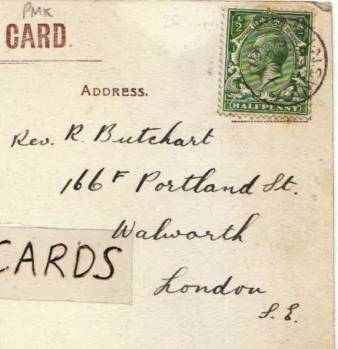 PMK
CARD.
ADDRESS.
HALFPENNY
Rev. R. Butchart
166F Portland St.
Walworth
CARDS
London
S.E.